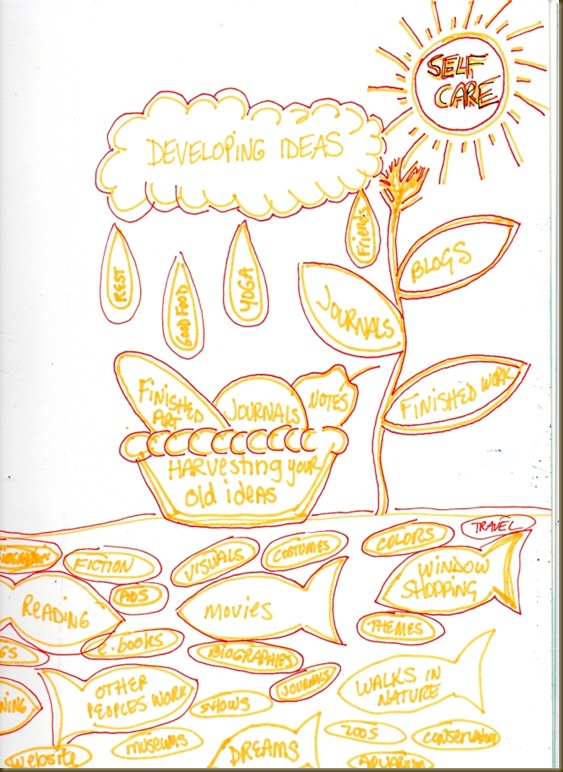 SELF
CARE
DEVELOPING IDEAS
REST
GOOD FOOD
YOGA
Friends
BLOGS
JOURNALS
FINISHED WORK
FINISHED
ART
JOURNALS
NOTES
HARVESTING your
old ideas
TRAVEL
FICTION
VISUALS
COSTUMES
COLORS
WINDOW
SHOPPING
ADS
READING
MOVIES
THEMES
e.books
BIOGRAPHIES
OTHER
PEOPLES WORK
JOURNALS
WALKS IN
NATURE
SHOWS
website
MUSEUMS
DREAMS
ZOOS
CONSERVATORY
AQUARIUM